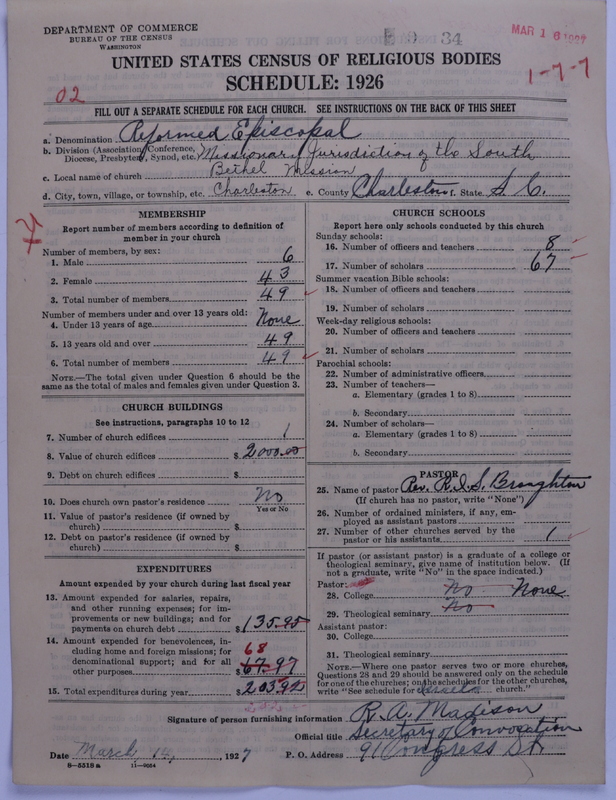 DEPARTMENT OF COMMERCE
BUREAU OF THE CENSUS
WASHINGTON
E 9 34
MAR 16 1927
UNITED STATES CENSUS OF RELIGIOUS BODIES
SCHEDULE: 1926
1-7-7
02
FILL OUT A SEPARATE SCHEDULE FOR EACH CHURCH. SEE INSTRUCTIONS ON THE BACK OF THIS SHEET
a. Denomination Reformed Episcopal
b. Division (Association, Conference, Diocese, Presbytery, Synod, etc.) Missionary Jurisdiction of the South
c. Local name of church Bethel Mission
d. City, town, village, or township, etc. Charleston e. County Charleston f. State S. C.
MEMBERSHIP
Report number of members according to definition of
member in your church
Number of members, by sex:
1. Male 6
2. Female 43
3. Total number of members 49
Number of members under and over 13 years old:
4. Under 13 years of age None
5. 13 years old and over 49
6. Total number of members 49
NOTE.—The total given under Question 6 should be the
same as the total of males and females given under Question 3.
CHURCH BUILDINGS
See instructions, paragraphs 10 to 12
7. Number of church edifices 1
8. Value of church edifices $ 2000.00
9. Debt on church edifices $
10. Does church own pastor's residence No
Yes or No
11. Value of pastor's residence (if owned by
church) $
12. Debt on pastor's residence (if owned by
church) $
EXPENDITURES
Amount expended by your church during last fiscal year
13. Amount expended for salaries, repairs,
and other running expenses; for im-
provements or new buildings; and for
payments on church debt $ 135.95
14. Amount expended for benevolences, in-
cluding home and foreign missions; for
denominational support; and for all
other purposes 68
$ 67.97
15. Total expenditures during year $ 203.92
CHURCH SCHOOLS
Report here only schools conducted by this church
Sunday schools:
16. Number of officers and teachers 8
17. Number of scholars 67
Summer vacation Bible schools:
18. Number of officers and teachers
19. Number of scholars
Week-day religious schools:
20. Number of officers and teachers
21. Number of scholars
Parochial schools:
22. Number of administrative officers
23. Number of teachers—
a. Elementary (grades 1 to 8)
b. Secondary
24. Number of scholars—
a. Elementary (grades 1 to 8)
b. Secondary
PASTOR
25. Name of pastor Rev. R. I. S. Broughton
(If church has no pastor, write "None")
26. Number of ordained ministers, if any, em-
ployed as assistant pastors
27. Number of other churches served by the
pastor or his assistants 1
If pastor (or assistant pastor) is a graduate of a college or
theological seminary, give name of institution below. (If
not a graduate, write "No" in the space indicated.)
Pastor:
28. College No None
29. Theological seminary No
Assistant pastor:
30. College
31. Theological seminary
NOTE.—Where one pastor serves two or more churches,
Questions 28 and 29 should be answered only on the schedule
for one of the churches; on the schedules for the other churches,
write "See schedule for Israel church."
Signature of person furnishing information R. A. Madison
Official title Secretary of Convocation
Date March, 14, 1927 P. O. Address 91 Congress St.
8-5518 a 11-9054